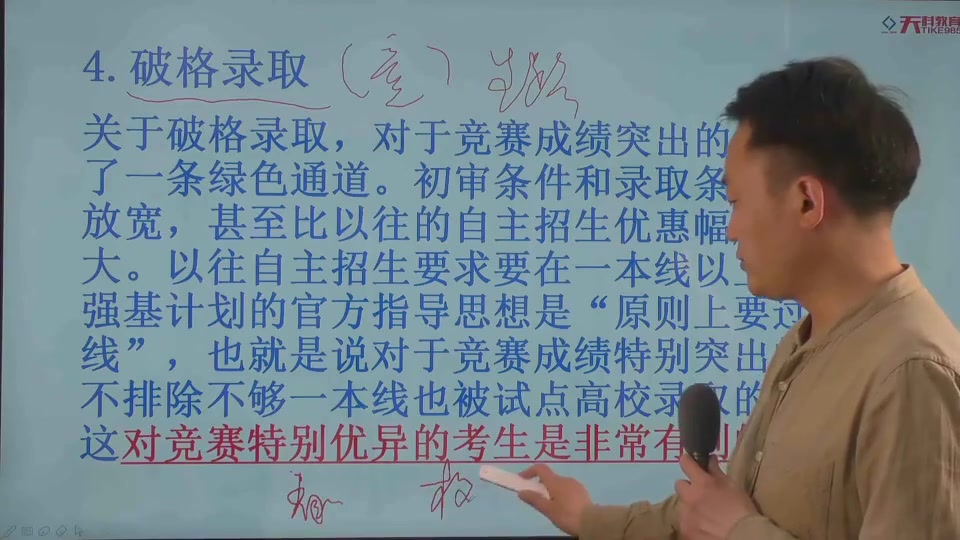 天科教育
TIKE985
4. 破格录取 (竞)
关于破格录取，对于竞赛成绩突出的
了一条绿色通道。初审条件和录取条
放宽，甚至比以往的自主招生优惠幅
大。以往自主招生要求要在一本线以上
强基计划的官方指导思想是“原则上要过
线”，也就是说对于竞赛成绩特别突出
不排除不够一本线也被试点高校录取的
这对竞赛特别优异的考生是非常有利